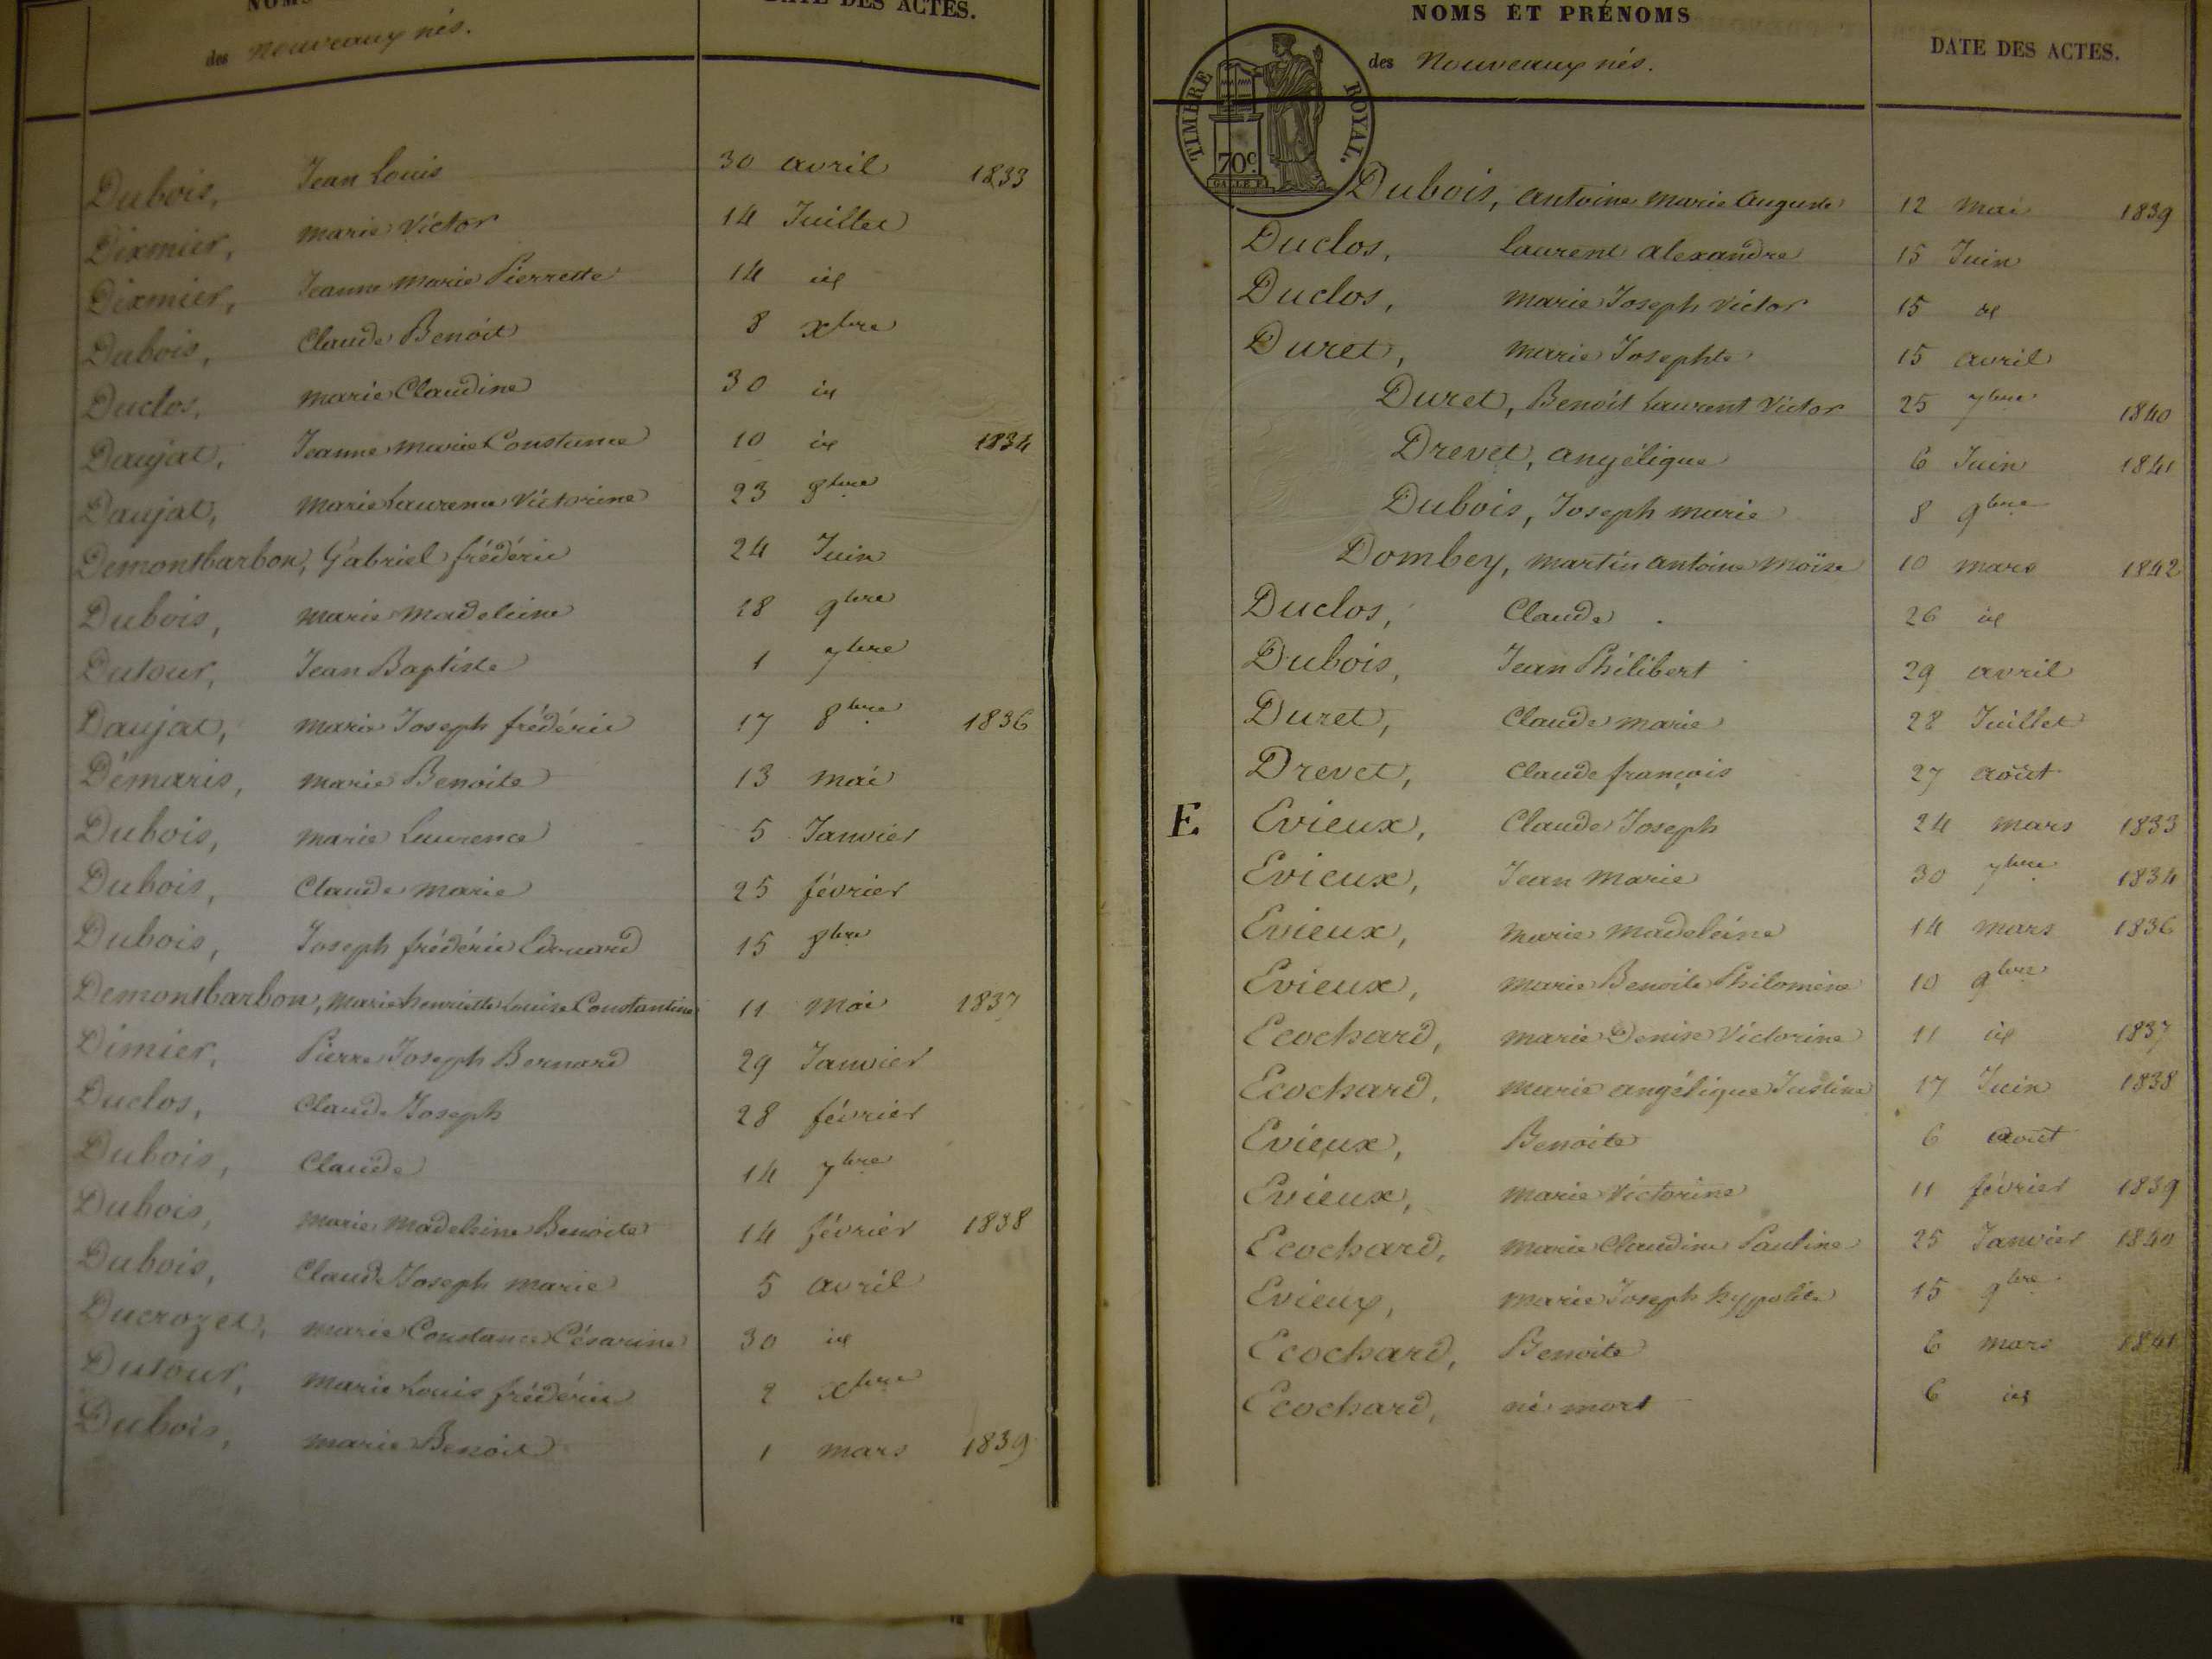 NOMS
DATE DES ACTES.
des Nouveaux nés.
Dubois, Jean Louis 30 avril 1833
Dixmier, Marie Victor 14 Juillet
Dixmier, Jeanne Marie Pierrette 14 id
Dubois, Claude Benoit 8 xbre
Duclos, Marie Claudine 30 id
Daujat, Jeanne Marie Constance 10 id 1834
Daujat, Marie Laurence Victorine 23 8bre
Demontbarbon, Gabriel frédéric 24 Juin
Dubois, Marie Madeleine 18 9bre
Dutour, Jean Baptiste 1 7bre
Daujat, Marie Joseph frédéric 17 8bre 1836
Démaris, Marie Benoite 13 Mai
Dubois, Marie Laurence 5 Janvier
Dubois, Claude Marie 25 février
Dubois, Joseph frédéric Edouard 15 8bre
Demontbarbon, Marie henriette Louise Constantine 11 Mai 1837
Dimier, Pierre Joseph Bernard 29 Janvier
Duclos, Claude Joseph 28 février
Dubois, Claude 14 7bre
Dubois, Marie Madeleine Benoite 14 février 1838
Dubois, Claude Joseph Marie 5 avril
Ducrozet, Marie Constance Césarine 30 id
Dutour, Marie Louis frédéric 2 xbre
Dubois, Marie Benoit 1 Mars 1839
NOMS ET PRÉNOMS
des Nouveaux nés.
DATE DES ACTES.
TIMBRE ROYAL.
70c.
Dubois, antoine Marie auguste 12 Mai 1839
Duclos, Laurent alexandre 15 Juin
Duclos, Marie Joseph Victor 15 id
Duret, Marie Josephte 15 avril
Duret, Benoit Laurent Victor 25 7bre 1840
Drevet, angélique 6 Juin 1841
Dubois, Joseph Marie 8 9bre
Dombey, Martin antoine Moïse 10 Mars 1842
Duclos, Claude 26 id
Dubois, Jean Philibert 29 avril
Duret, Claude Marie 28 Juillet
Drevet, Claude françois 27 août
E Evieux, Claude Joseph 24 Mars 1833
Evieux, Jean Marie 30 7bre 1834
Evieux, Marie Madeleine 14 Mars 1836
Evieux, Marie Benoite Philomène 10 9bre
Ecochard, Marie Denise Victorine 11 id 1837
Ecochard, Marie angélique Justine 17 Juin 1838
Evieux, Benoite 6 août
Evieux, Marie Victorine 11 février 1839
Ecochard, Marie Claudine Pauline 25 Janvier 1840
Evieux, Marie Joseph hypolite 15 9bre
Ecochard, Benoite 6 Mars 1841
Ecochard, né mort 6 id